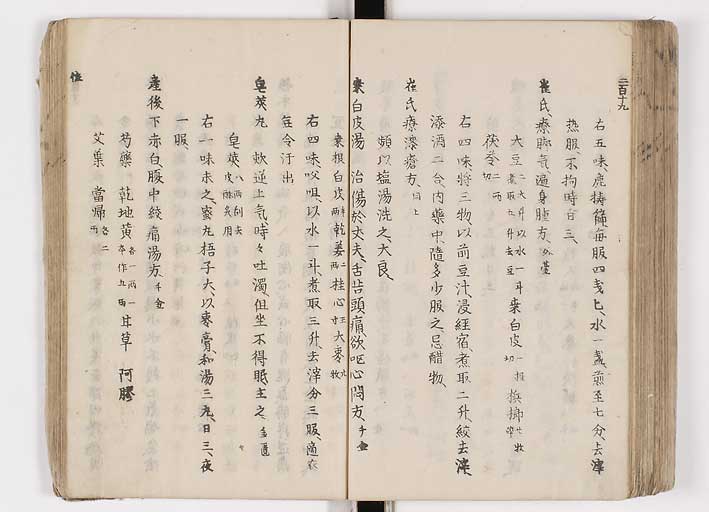 二百十九
右五味麁擣篩每服四戔匕水一盞煎至七分去滓
熱服不拘時日三
崔氏療脚氣遍身腫方 外臺
大豆 二大升以水一斗煮取五升去豆 桒白皮 一握切 檳榔 七枚碎
茯苓 二两切
右四味將三物以前豆汁浸経宿煮取二升絞去滓
添酒二合內藥中隨多少服之忌醋物
崔氏療瘡方 同上
頻以塩湯洗之大良
桒白皮湯 治傷於丈夫舌苦頭痛欲呕心悶方 千金
桒根白皮 乾姜 二两 桂心 五寸 大枣 枚
右四味㕮咀以水一斗煮取三升去滓分三服適衣
在令汗出
皂莢丸 欬逆上气時々吐濁但坐不得眠主之 金匱
皂莢 八两刮去皮酥炙用
右一味末之蜜丸梧子大以枣膏和湯三丸日三夜
一服
產後下赤白腹中絞痛湯方 千金
芍藥 乾地黄 各一两一本作五两 甘草 阿膠
艾葉 當帰 各二两